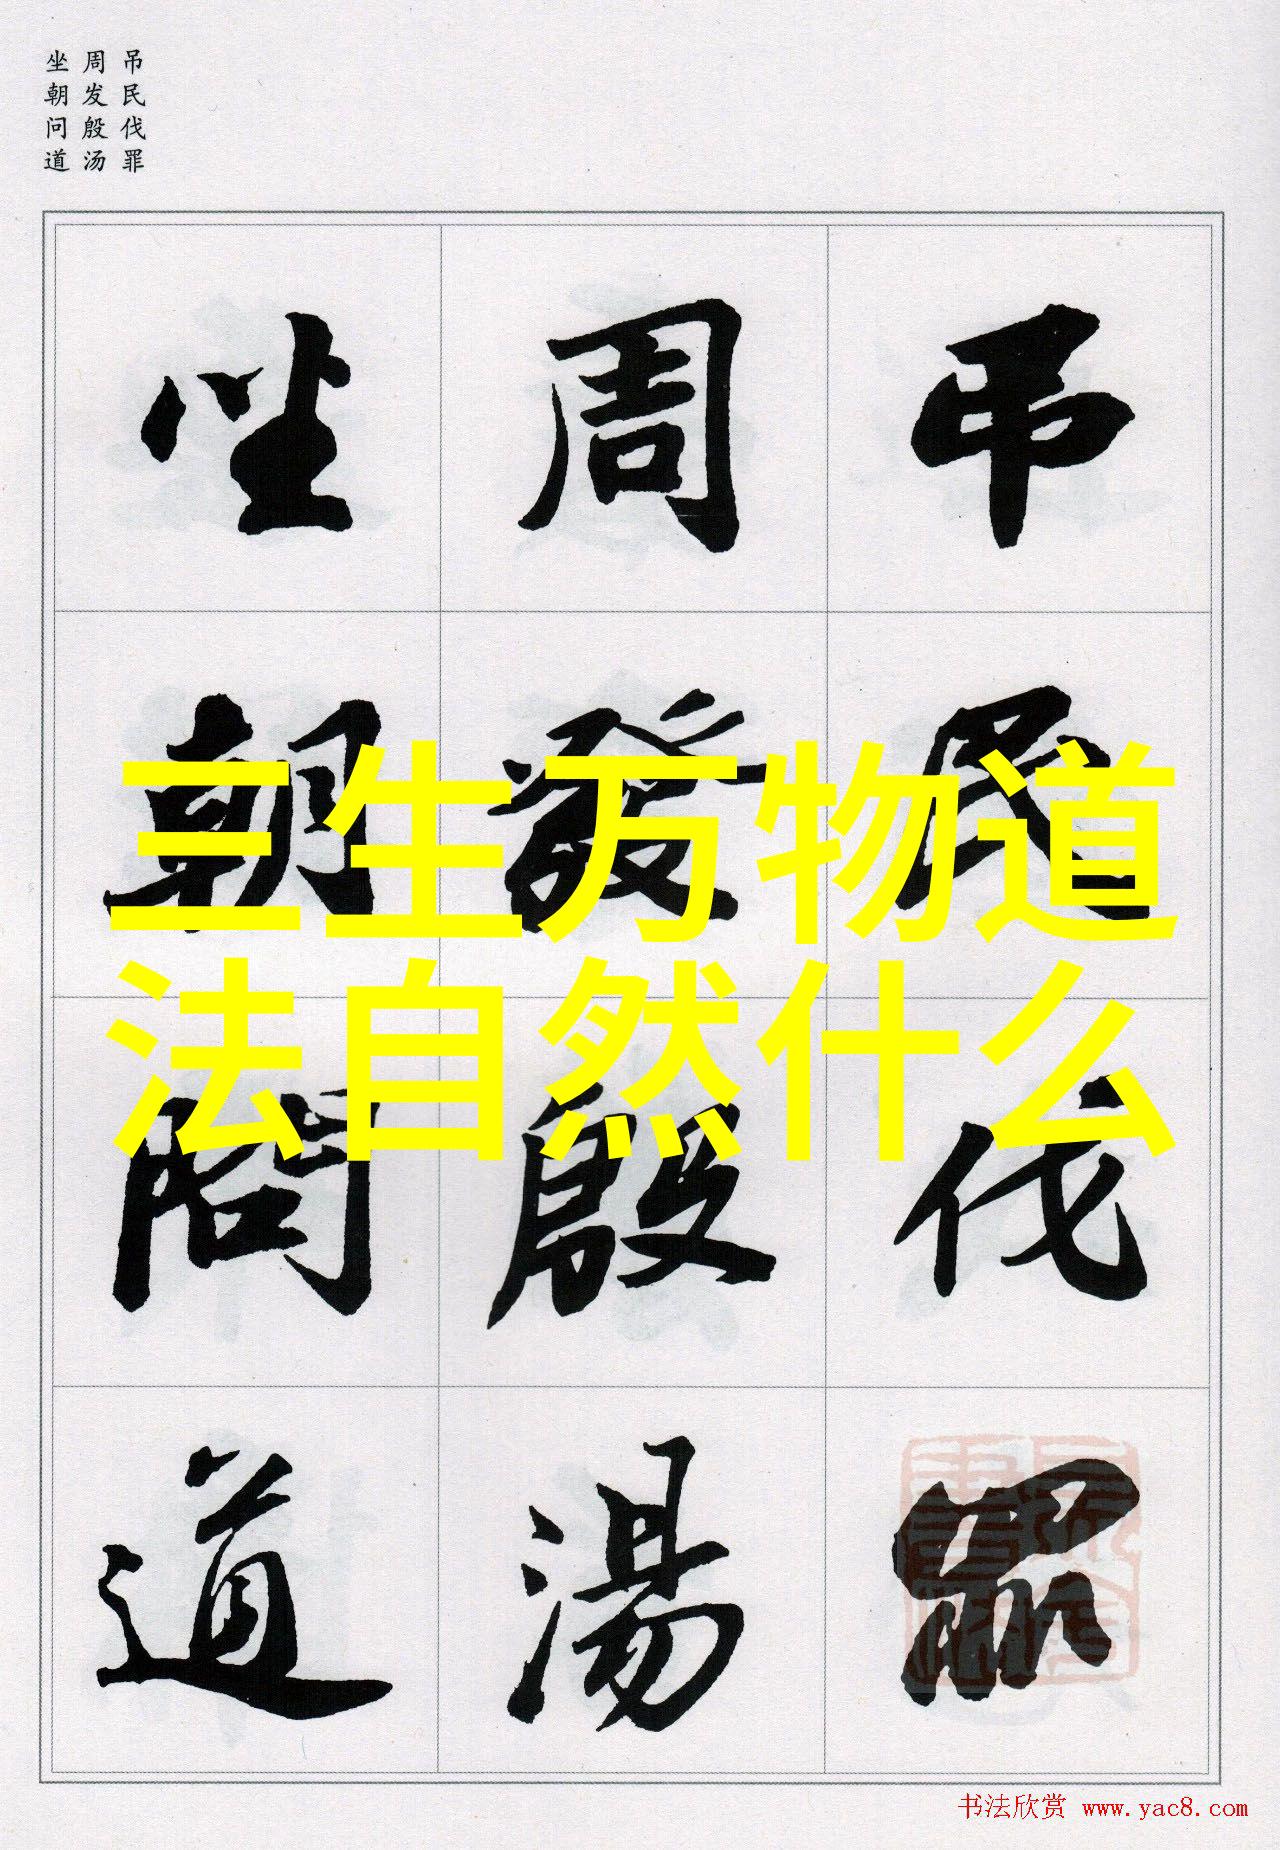 吊民伐罪
周发殷汤
坐朝问道
吊民伐罪
周發殷湯
坐朝問道
三生万物道
法自然什么
书法欣赏 www.yac8.com